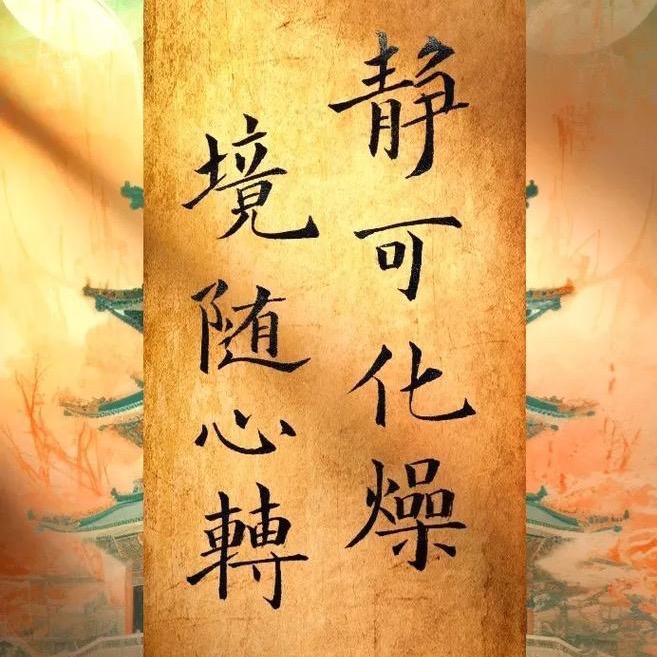 静可化燥
境随心轉